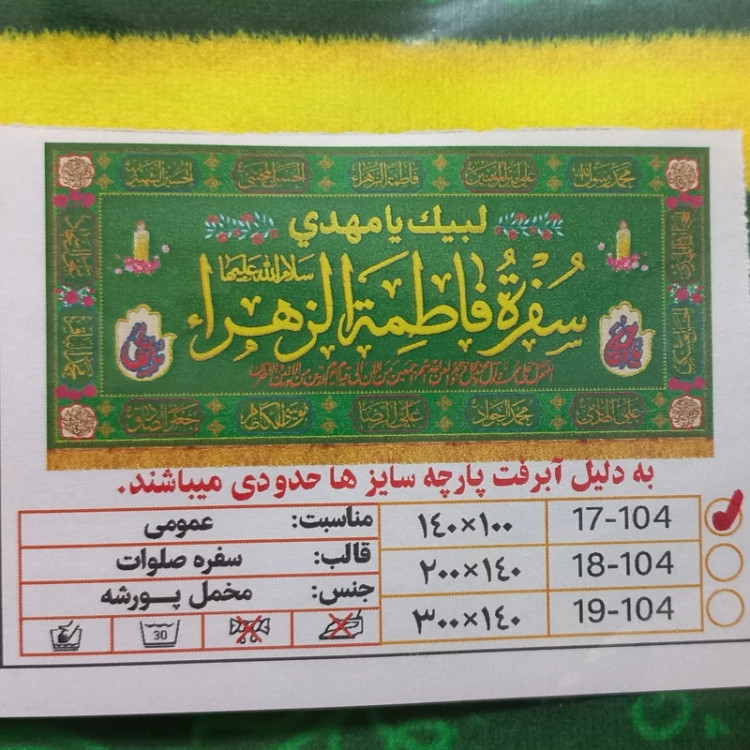 محمد رسول الله علی امیر المؤمنین فاطمة الزهراء الحسن المجتبی الحسین الشهید
لبيك يا مهدي
سلام الله عليها
سُفرة فاطِمة الزهراء
علی الهادی محمد الجواد علی الرضا موسی الکاظم جعفر الصادق
به دلیل آبرفت پارچه سایز ها حدودی میباشند.
مناسبت: عمومی
قالب: سفره صلوات
جنس: مخمل پورشه
30
۱۴۰×۱۰۰ 17-104
۲۰۰×۱۴۰ 18-104
۳۰۰×۱۴۰ 19-104